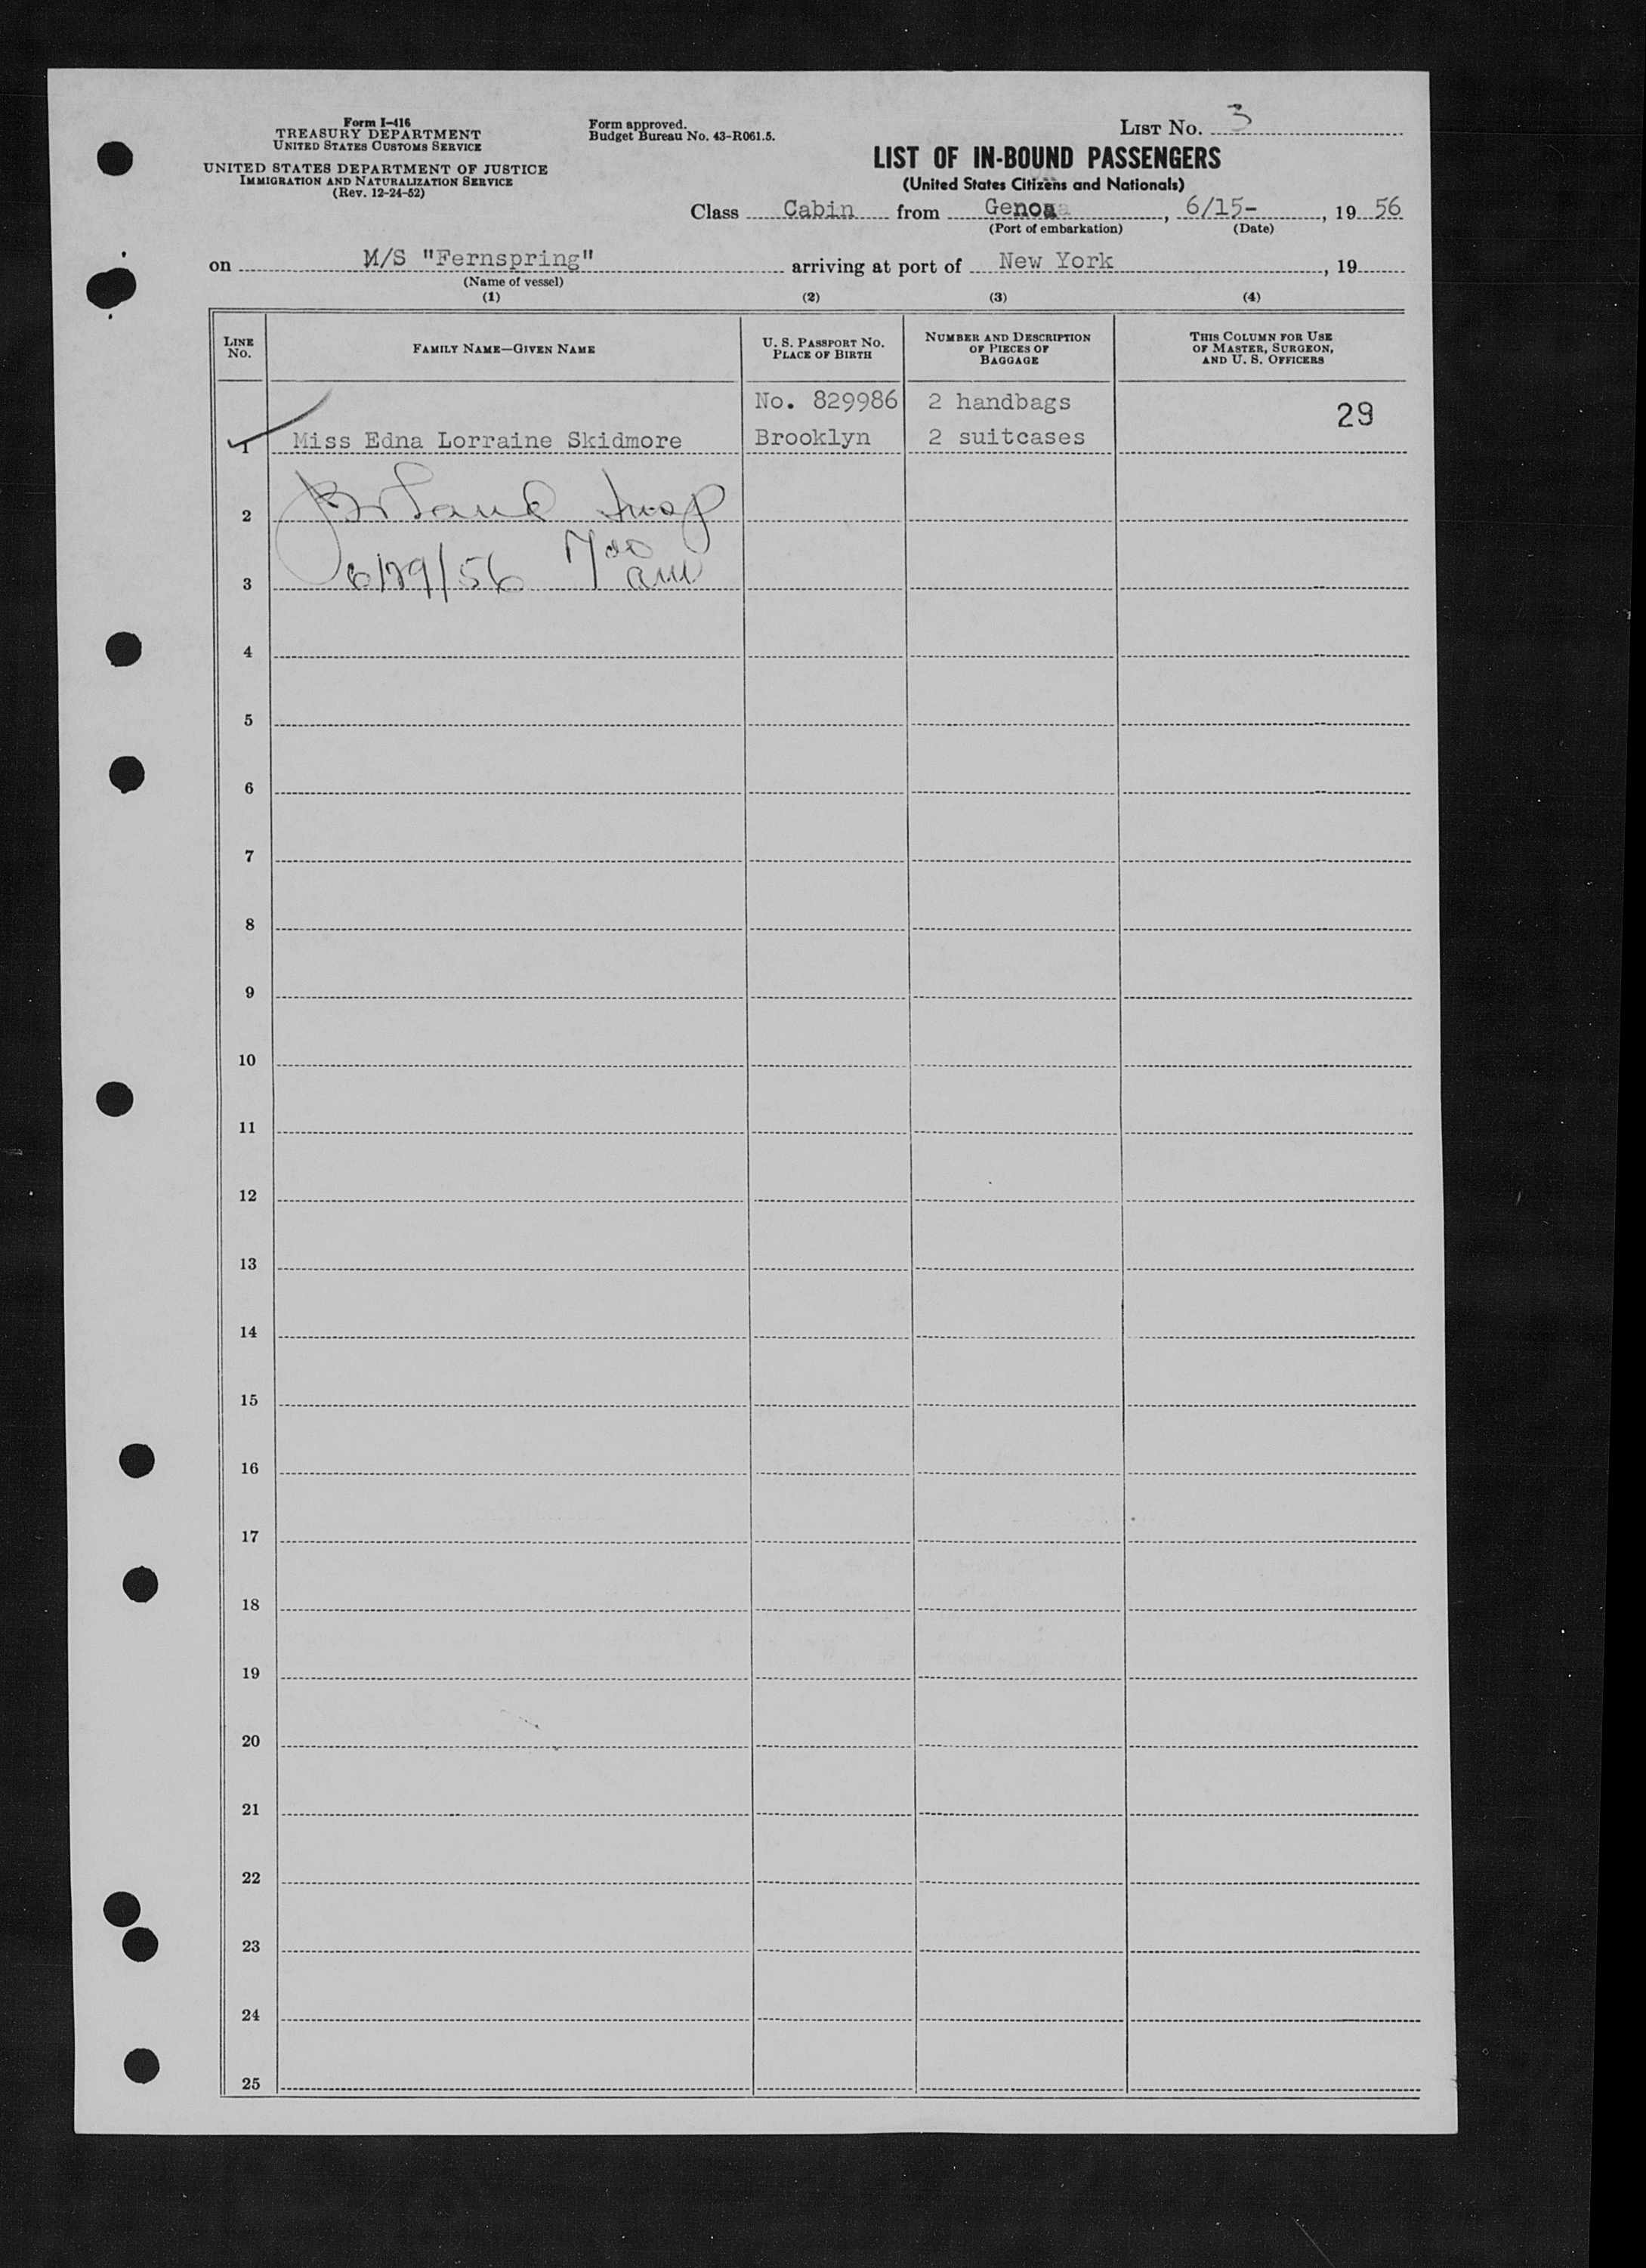 Form I-416
TREASURY DEPARTMENT
UNITED STATES CUSTOMS SERVICE
UNITED STATES DEPARTMENT OF JUSTICE
IMMIGRATION AND NATURALIZATION SERVICE
(Rev. 12-24-52)
Form approved.
Budget Bureau No. 43-R061.5.
LIST No. 3
LIST OF IN-BOUND PASSENGERS
(United States Citizens and Nationals)
Class Cabin from Genoa, 6/15-, 19 56
(Port of embarkation) (Date)
on M/S "Fernspring" arriving at port of New York, 19
(Name of vessel)
(1) (2) (3) (4)
LINE No. FAMILY NAME—GIVEN NAME U. S. PASSPORT NO. PLACE OF BIRTH NUMBER AND DESCRIPTION OF PIECES OF BAGGAGE THIS COLUMN FOR USE OF MASTER, SURGEON, AND U. S. OFFICERS
No. 829986 2 handbags 29
1 Miss Edna Lorraine Skidmore Brooklyn 2 suitcases
2 Insp
3 6/29/56 7 00 am
4
5
6
7
8
9
10
11
12
13
14
15
16
17
18
19
20
21
22
23
24
25